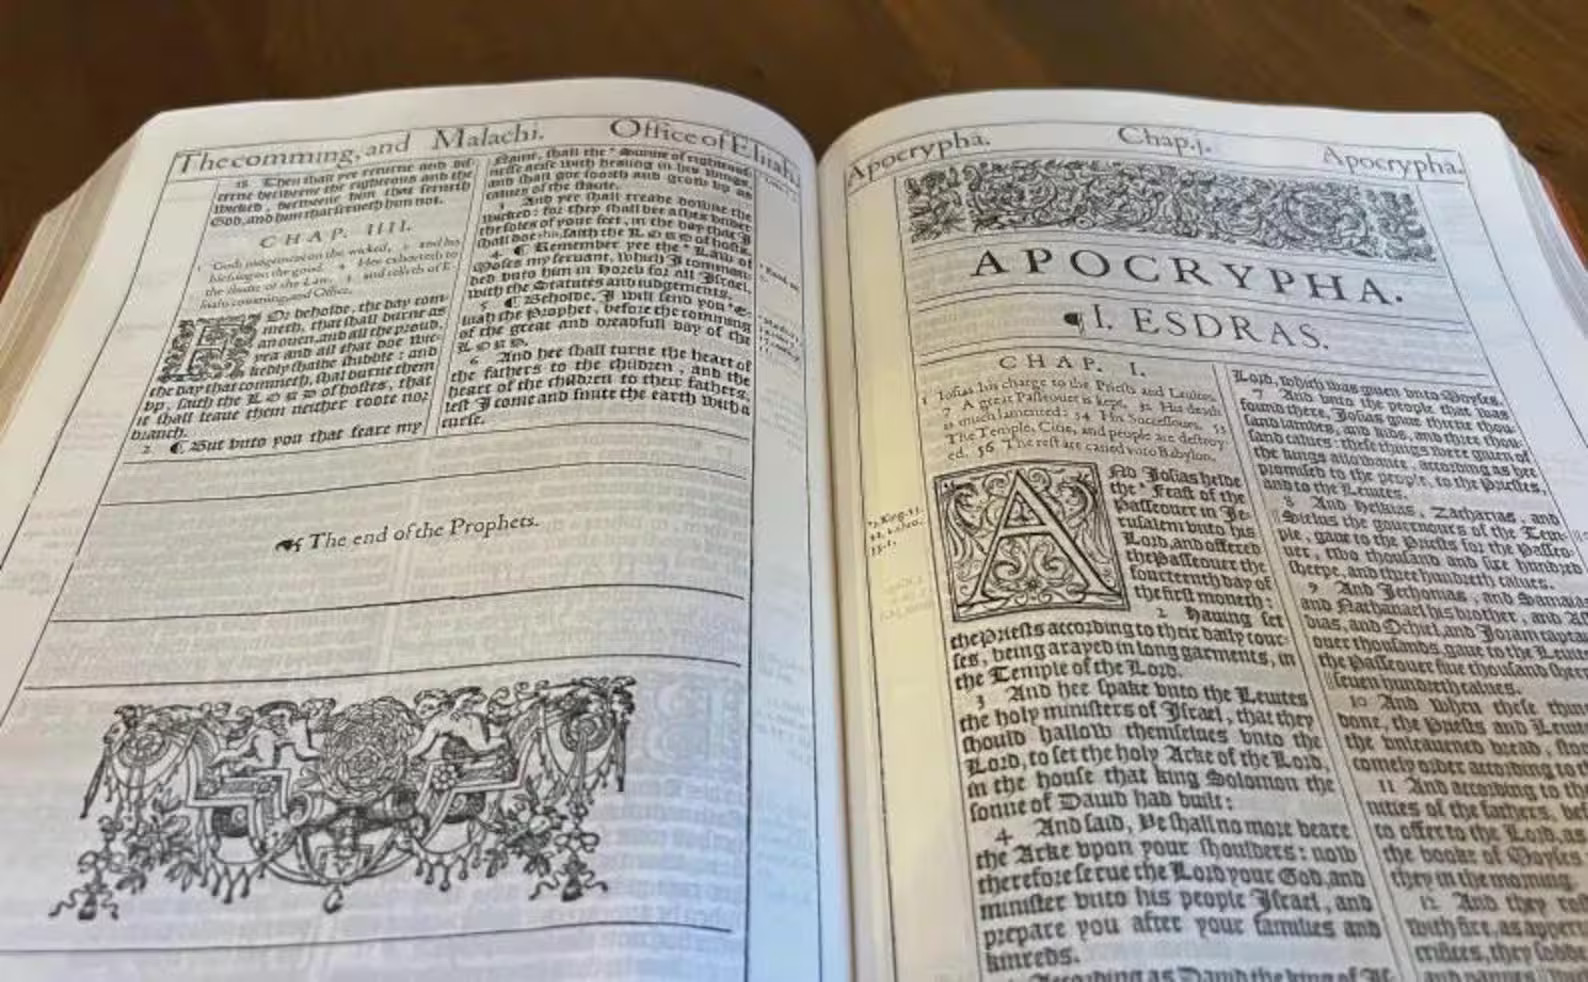 The comming, and Malachi. Office of Eliah.
18 Then shall yee returne and dis-
cerne betweene the righteous and the
wicked, betweene him that serueth
God, and him that serueth him not.
CHAP. IIII.
1 Gods iudgement on the wicked, 2 and his
blessing on the good. 4 Hee exhorteth to
the studie of the Law, 5 and telleth of E-
liahs comming, and Office.
FOr beholde, the day com-
meth, that shall burne as
an ouen, and all the proud,
yea and all that doe wic-
kedly shalbe stubble: and
the day that commeth, shall burne them
vp, saith the LORD of hostes, that
it shall leaue them neither roote nor
branch.
2 ¶ But vnto you that feare my
Name, shall the * Sunne of righteous-
nesse arise with healing in his wings,
and shall goe foorth and grow vp as
calues of the staule.
3 And yee shall treade downe the
wicked: for they shall bee ashes vnder
the soles of your feet, in the day that I
shall doe this, saith the LORD of hosts.
4 ¶ Remember yee the * Law of
Moses my seruant, which I comman-
ded vnto him in Horeb for all Israel,
with the Statutes and iudgements.
5 ¶ Beholde, I will send you * E-
liiah the Prophet, before the comming
of the great and dreadfull day of the
LORD.
6 And hee shall turne the heart of
the fathers to the children, and the
heart of the children to their fathers,
lest I come and smite the earth with a
curse.
The end of the Prophets.
Apocrypha. Chap.j. Apocrypha.
APOCRYPHA.
¶ I. ESDRAS.
CHAP. I.
1 Iosias his charge to the Priests and Leuites.
7 A great Passeouer is kept. 32 His death
is much lamented: 34 His Successours. 53
The Temple, Citie, and people are destroy-
ed. 56 The rest are caried vnto Babylon.
ANd Iosias helde
the * Feast of the
Passeouer in Ie-
rusalem vnto his
Lord, and offered
the Passeouer the
fourteenth day of
the first moneth:
2 Hauing set
the Priests according to their daily cour-
ses, being arayed in long garments, in
the Temple of the Lord.
3 And hee spake vnto the Leuites
the holy ministers of Israel, that they
should hallow themselues vnto the
Lord, to set the holy Arke of the Lord,
in the house that king Solomon the
sonne of Dauid had built:
4 And said, Ye shall no more beare
the Arke vpon your shoulders: now
therefore serue the Lord your God, and
minister vnto his people Israel, and
prepare you after your families and
kinreds.
According as Dauid the king of Is-
Lord, which was giuen vnto Moyses.
7 And vnto the people that was
found there, Iosias gaue thirtie thou-
sand lambes, and kids, and three thou-
sand calues: these things were giuen of
the kings allowance, according as hee
promised to the people, to the Priestes,
and to the Leuites.
8 And Helkias, Zacharias, and
Sielus the gouernours of the Tem-
ple, gaue to the Priests for the Passeo-
uer, two thousand and sixe hundred
sheepe, and three hundreth calues.
9 And Iechonias, and Samaias
and Nathanael his brother, and
bias, and Ochiel, and Ioram captai
ouer thousands, gaue to the Leuites
the Passeouer fiue thousand sheepe
seuen hundreth calues.
10 And when these thin
done, the Priests and Leuit
the vnleauened bread, stoo
comely order according to t
11 And according to the
nities of the fathers, bef
to offer to the Lord, as
the booke of Moyses
they in the morning.
12 And they ros
with fire, as appert
crifices, they sodde